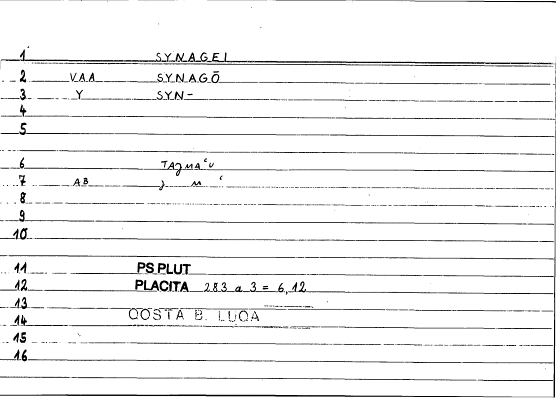 1 SYNAGEI
2 VAA SYNAGŌ
3 Y SYN-
4
5
6 TAJMAʿU
7 AB J M ʿ
8
9
10
11 PS PLUT
12 PLACITA 283 a 3 = 6,12
13
14 QOSTA B. LUQA
15
16